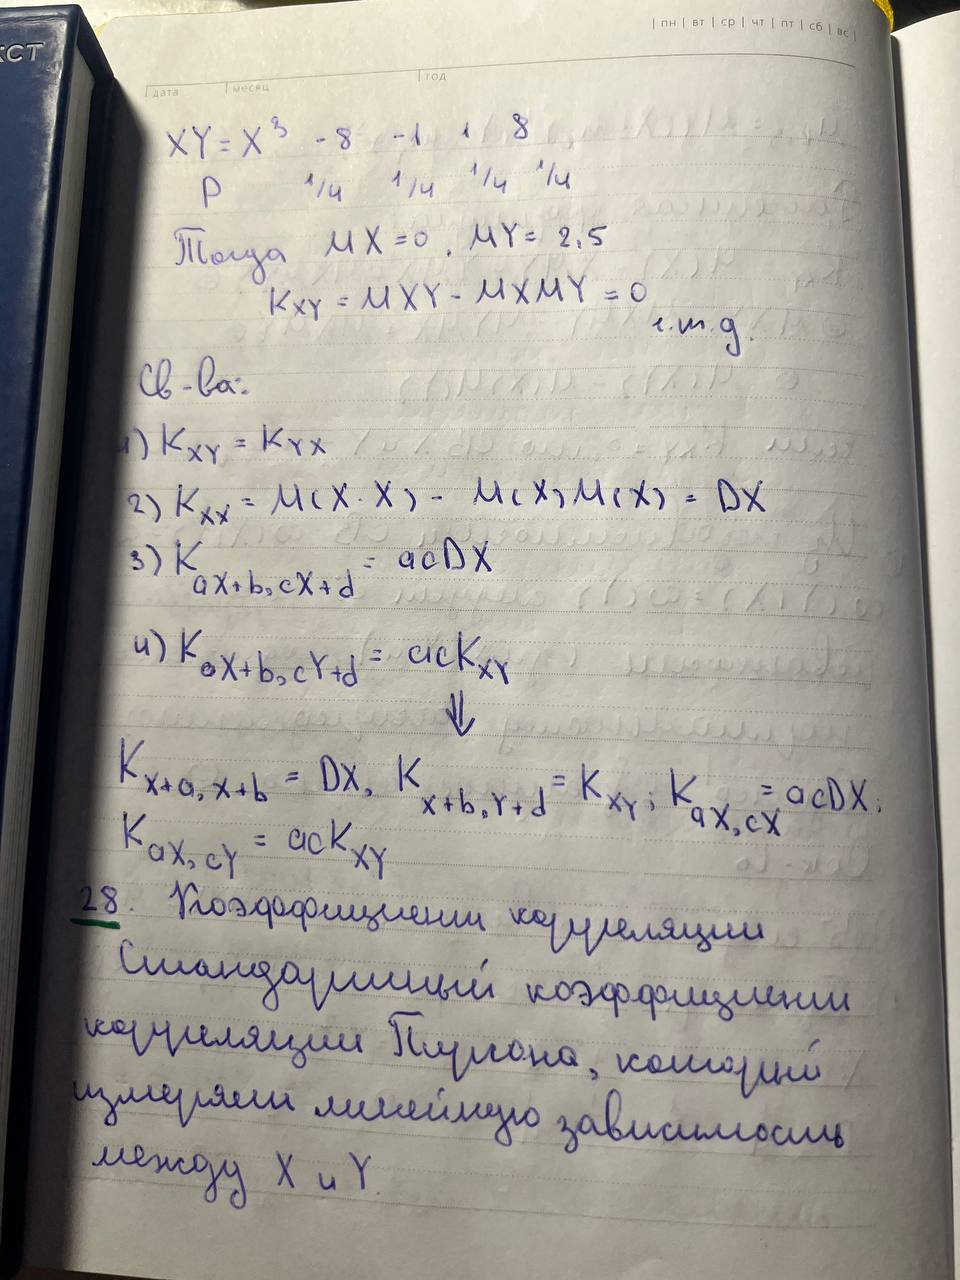 КСТ
| пн | вт | ср | чт | пт | сб | вс |
дата | месяц | год
XY = X³ -8 -1 1 8
P 1/4 1/4 1/4 1/4
Тогда MX = 0, MY = 2,5
K_XY = MXY - MXMY = 0
ч.т.д.
Св-ва:
1) K_XY = K_YX
2) K_XX = M(X·X) - M(X)M(X) = DX
3) K_aX+b,cX+d = acDX
4) K_aX+b,cY+d = acK_XY
⇓
K_X+a,X+b = DX, K_X+b,Y+d = K_XY; K_aX,cX = acDX;
K_aX,cY = acK_XY
28. Коэффициент корреляции
Стандартный коэффициент
корреляции Пирсона, который
измеряет линейную зависимость
между X и Y.